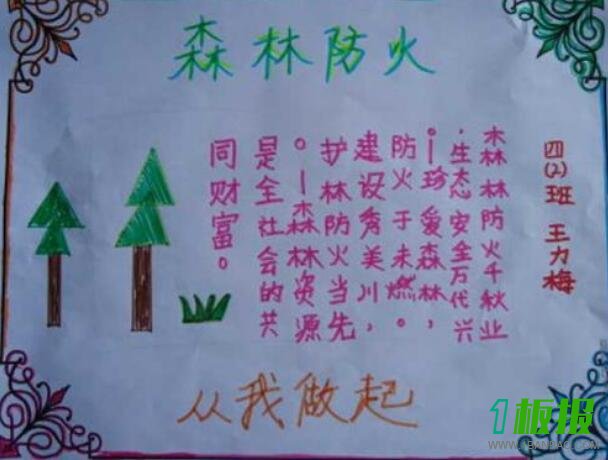 森林防火
四(2)班 王力梅
森林防火千秋业
·生态安全万代兴
。|珍爱森林，
防火于未燃。
建设秀美川，
护林防火当先
。|森林资源
是全社会的共
同财富。
从我做起
1板报
WWW.1BANBAO.COM